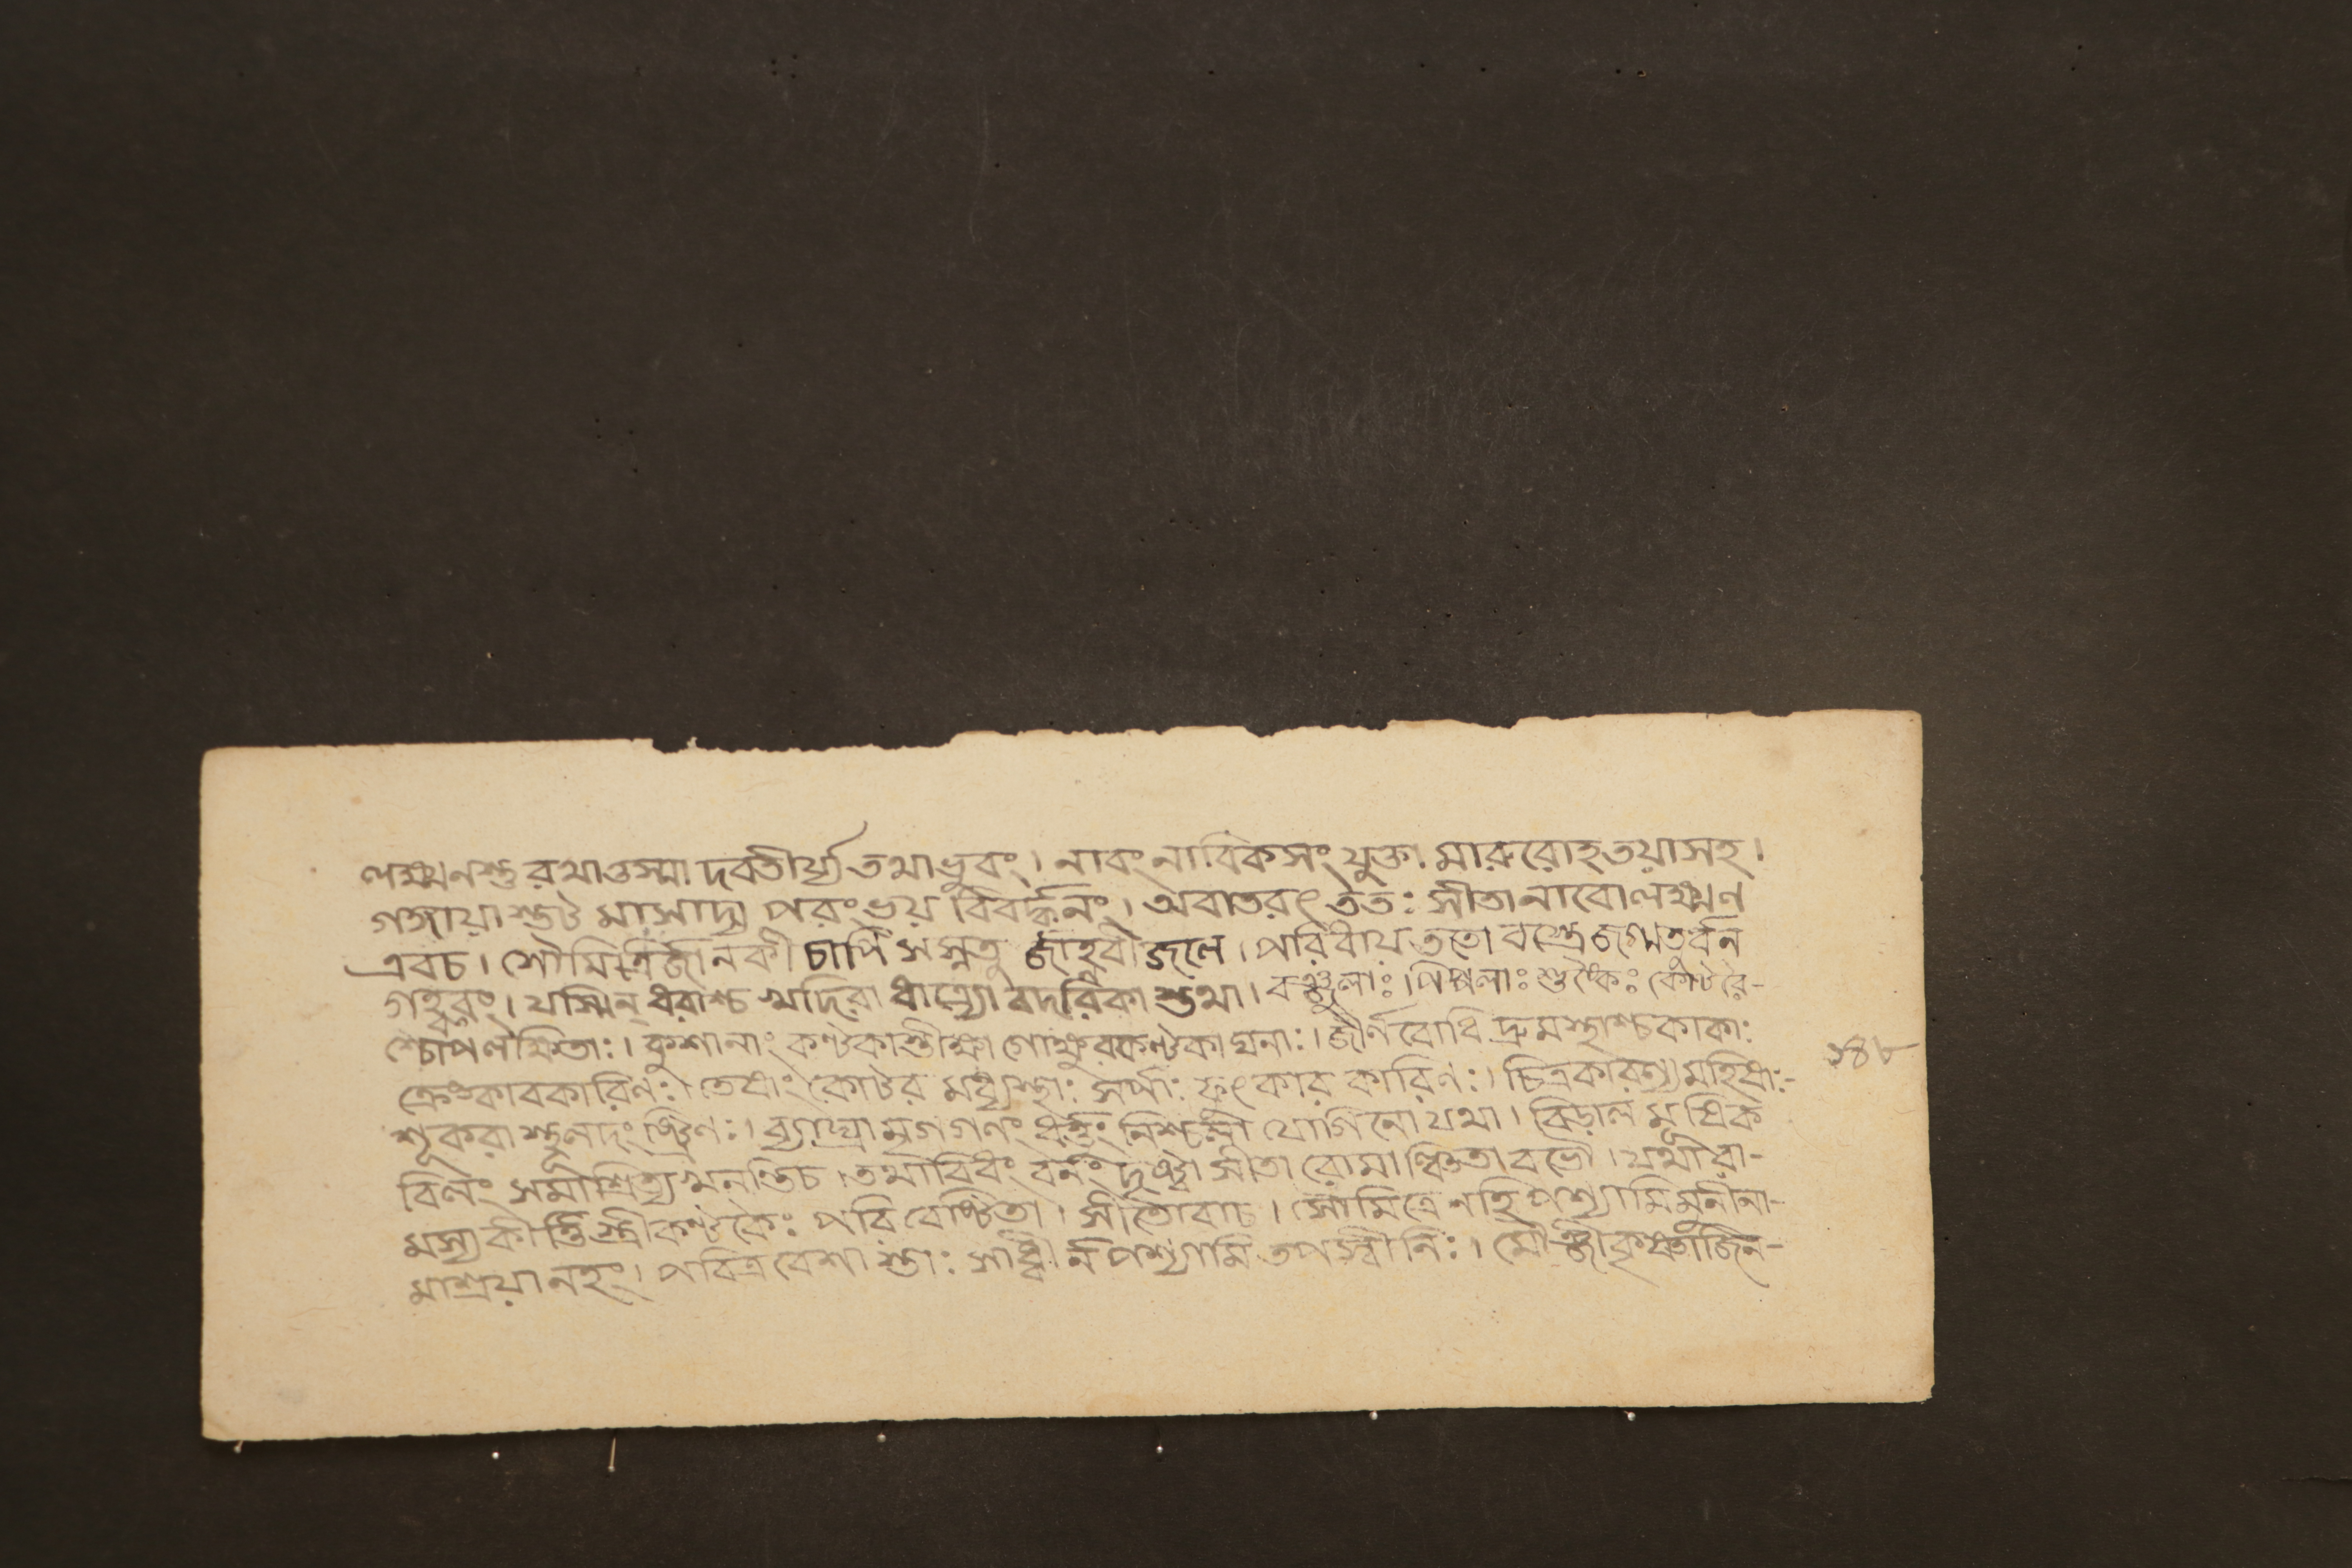 লক্ষ্মনস্তু রথাত্তস্মা দবতীর্য্য তথাধ্রুবং। নাবং নাবিকসং যুক্তা মারুরোহ তয়াসহ।
গঙ্গায়া স্তট মাসাদ্য পরং ভয় বিবর্দ্ধনং। অবাতরৎ ততঃ সীতা নাবো লক্ষ্মণ
এবচ। সৌমিত্রির্জানকী চাপি সস্নতু র্জাহ্নবী জলে। পরিধায় ততো বস্ত্রে জগ্মতুর্বন
গহ্বরং। যস্মিন্ ধবাশ্চ খদিরা ধাত্র্যো বদরিকা স্তথা। বঞ্জুলাঃ। পিপ্পলাঃ শুষ্কৈঃ কোটরৈ-
শ্চোপলক্ষিতাঃ। কুশানাং কণ্টকাস্তীক্ষ্ণা গোক্ষুরকণ্টকা ঘনাঃ। জীর্ন বোধি দ্রুমস্থাশ্চ কাকাঃ
কারিণঃ। তেষাং কোটর মধ্যস্থাঃ সর্পাঃ ফুৎকার কারিণঃ। মহিষাঃ-
শূকরা স্তূলদংষ্ট্রিণঃ। ব্যাঘ্রা মৃগগণং যোগিনো যথা। বিড়াল মূষিক
বিলং সমাশ্রিত্য খনন্তিচ। তথাবিধং বনং দৃষ্ট্বা সীতা রোমাঞ্চিতা বভৌ। যথা রা-
মস্য কীর্ত্তি স্ত্রী কণ্টকৈঃ পরিবেষ্টিতা। সীতোবাচ। সৌমিত্রে নহি পশ্যামি মুনীনা-
মাশ্রয়া নহং। পবিত্র বেশা স্তাঃ সাধ্বী র্ন পশ্যামি তপস্বীনিঃ। মৌঞ্জী কৃষ্ণাজিন-
১৪৮